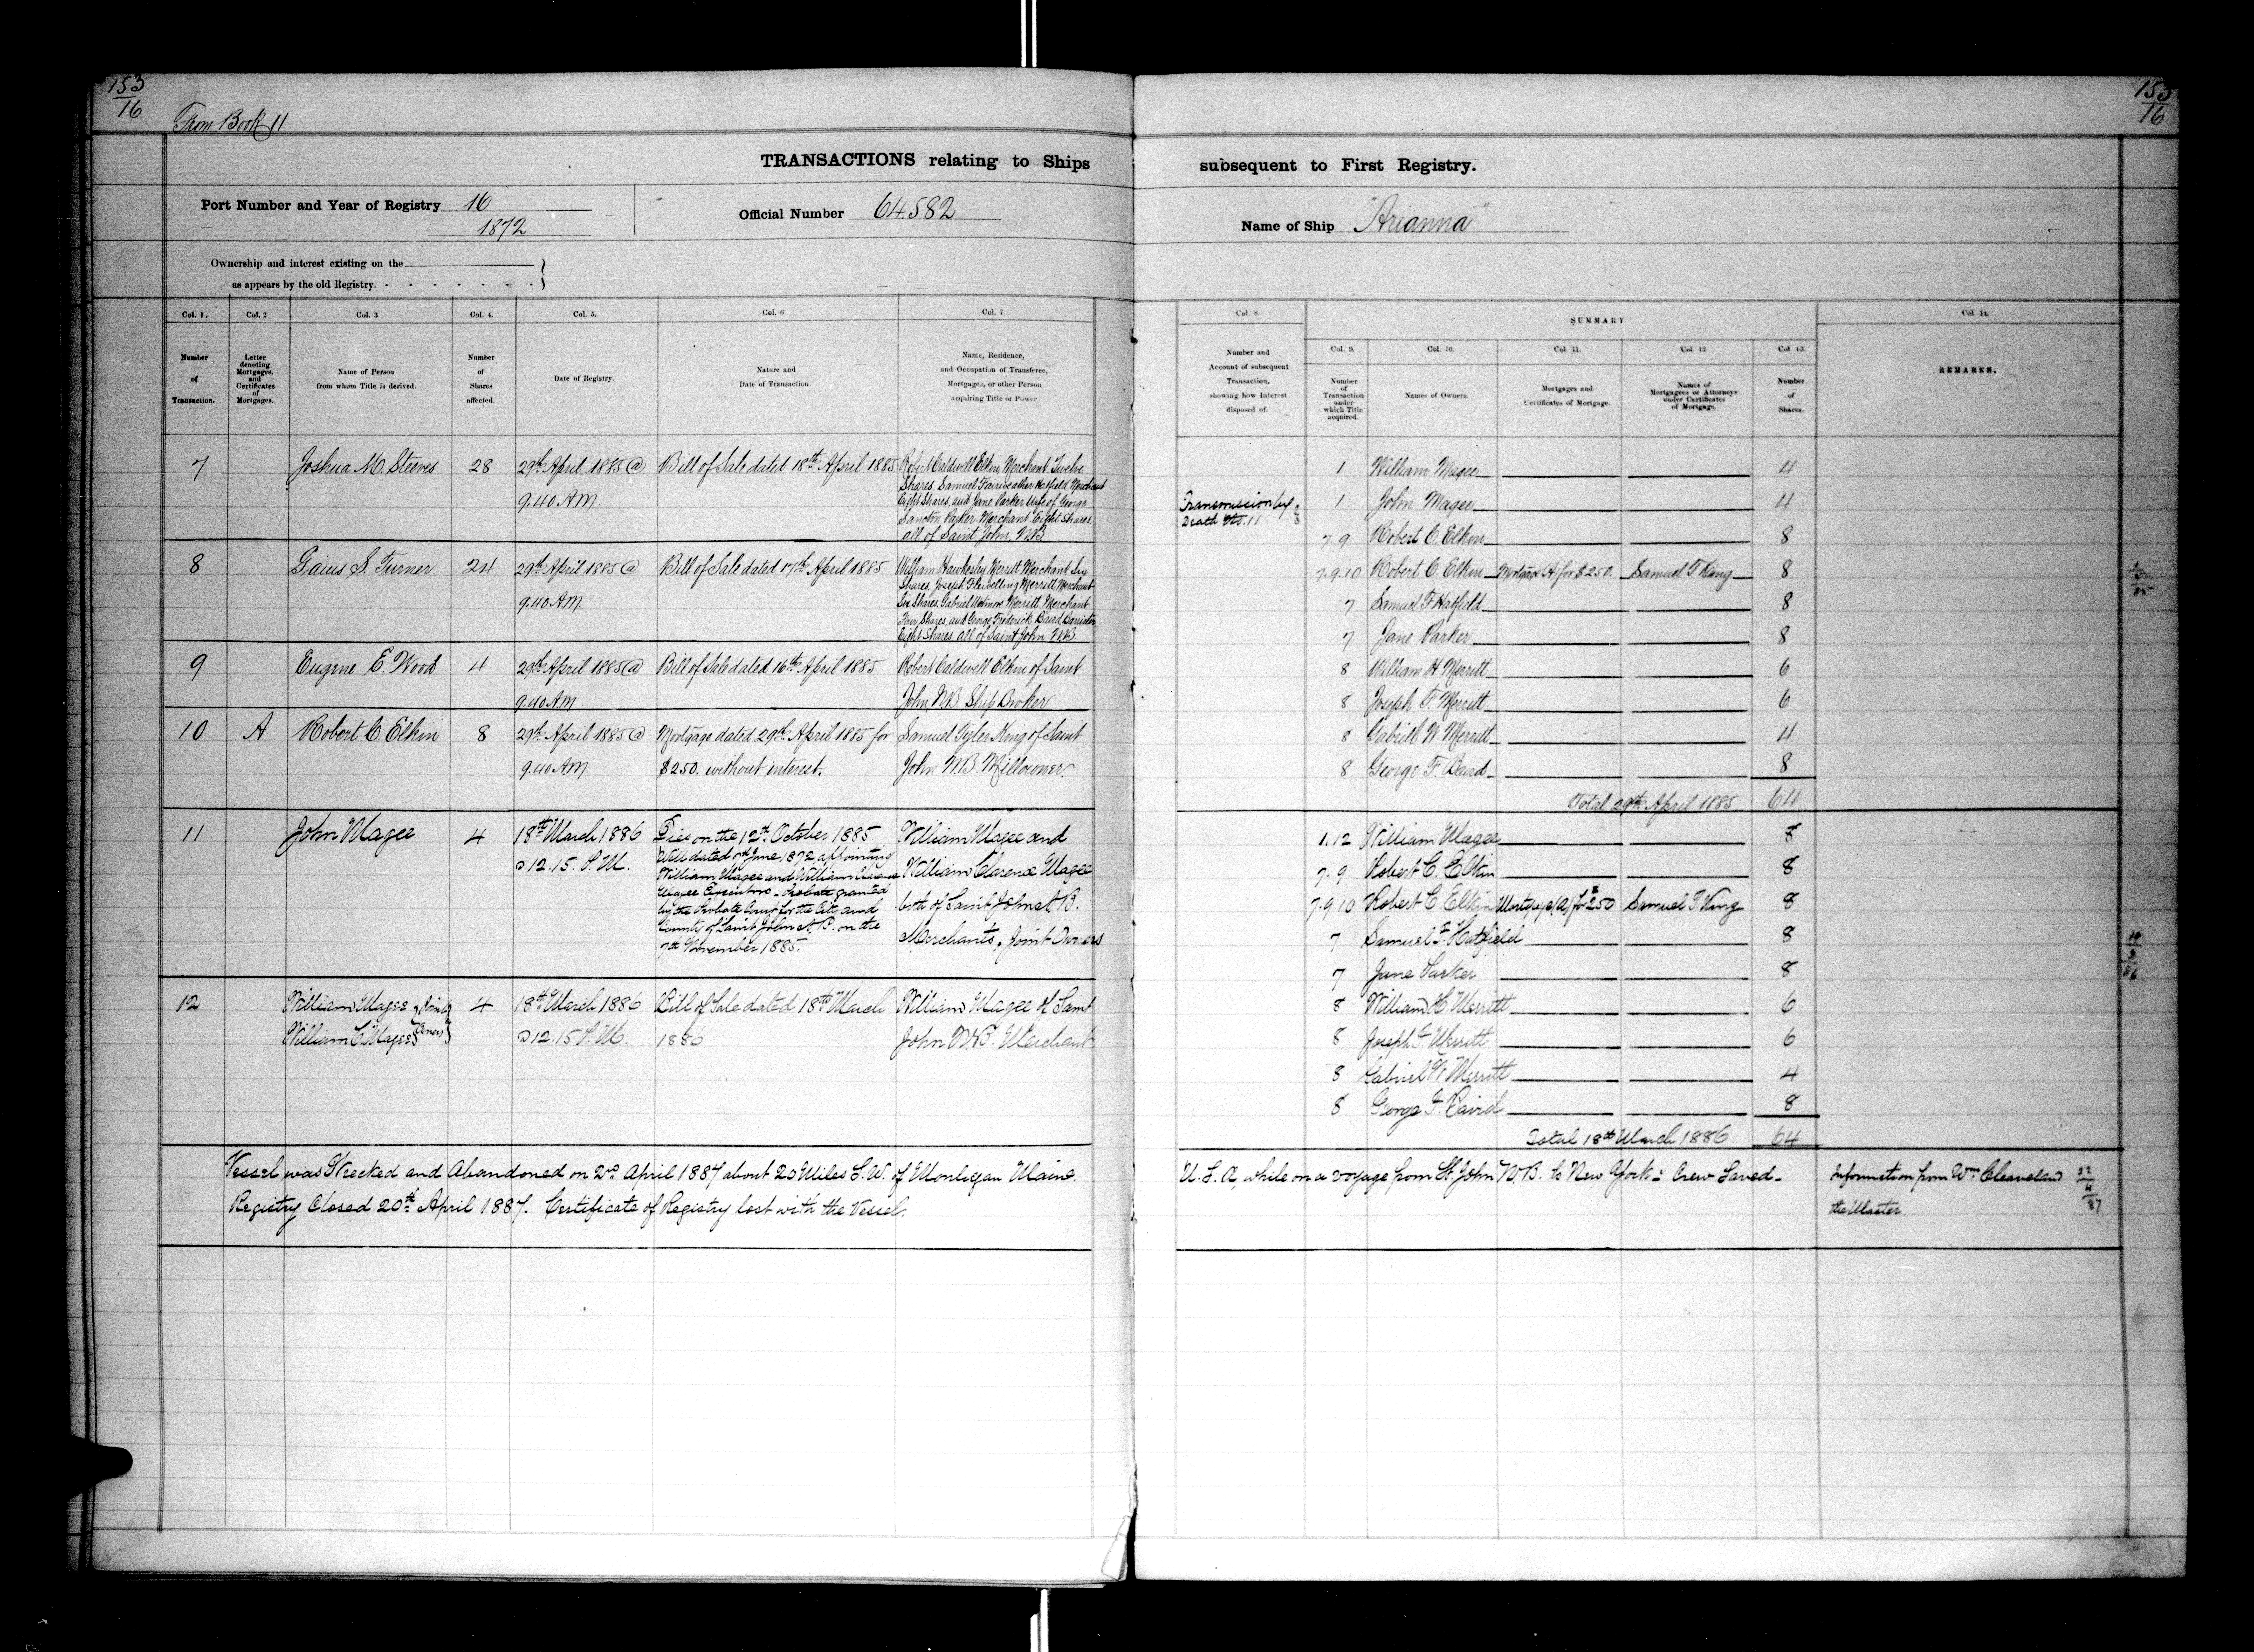 153
16
From Book 11
TRANSACTIONS relating to Ships
Port Number and Year of Registry 16
1872
Official Number 64582
Ownership and interest existing on the
as appears by the old Registry.
Col. 1.
Col. 2
Col. 3
Col. 4.
Col. 5.
Col. 6
Col. 7
Number
of
Transaction.
Letter
denoting
Mortgages,
and
Certificates
of
Mortgages.
Name of Person
from whom Title is derived.
Number
of
Shares
affected.
Date of Registry.
Nature and
Date of Transaction.
Name, Residence,
and Occupation of Transferee,
Mortgagee, or other Person
acquiring Title or Power.
7
Joshua M. Steeves
28
29th April 1885 @
9.40 A.M.
Bill of Sale dated 18th April 1885.
Robert Caldwell Elkin, Merchant, Twelve
Shares, Samuel Hatfield Merchant
Eight Shares, and Jane Parker Wife of George
Sancton Parker Merchant Eight Shares.
all of Saint John, N.B.
8
Gaius S. Turner
24
29th April 1885 @
9.40 A.M.
Bill of Sale dated 17th April 1885
William Hawkesley Merritt Merchant Six
Shares, Joseph Merritt Merchant
Six Shares, Gabriel Wetmore Merritt Merchant
Four Shares, and George Frederick Baird Barrister
Eight Shares all of Saint John N.B.
9
Eugene E. Wood
4
29th April 1885 @
9.40 A.M.
Bill of Sale dated 16th April 1885
Robert Caldwell Elkin of Saint
John N.B. Ship Broker
10
A
Robert C. Elkin
8
29th April 1885 @
9.40 A.M.
Mortgage dated 29th April 1885 for
$250. without interest.
Samuel Tyler King of Saint
John N.B. Millowner.
11
John Magee
4
18th March 1886
@ 12.15. P.M.
Died on the 12th October 1885.
Will dated June 1872 appointing
William Magee and William Clarence
Magee Executors - Probate granted
by the Probate Court for the City and
County of Saint John N.B. on the
7th November 1885.
William Magee and
William Clarence Magee
both of Saint John N.B.
Merchants, Joint Owners
12
William Magee } Joint
William C. Magee } Owners
4
18th March 1886
@ 12.15 P.M.
Bill of Sale dated 18th March
1886
William Magee of Saint
John N.B. Merchant
Vessel was Wrecked and Abandoned on 2nd April 1887 about 20 Miles S.W. of Monhegan Maine.
Registry Closed 20th April 1887. Certificate of Registry lost with the Vessel.
153
16
subsequent to First Registry.
Name of Ship "Arianna"
Col. 8
SUMMARY
Col. 14.
Col. 9.
Col. 10.
Col. 11.
Col. 12
Col. 13.
Number and
Account of subsequent
Transaction,
showing how Interest
disposed of.
Number
of
Transaction
under
which Title
acquired.
Names of Owners.
Mortgages and
Certificates of Mortgage.
Names of
Mortgagees or Attorneys
under Certificates
of Mortgage.
Number
of
Shares.
REMARKS.
1 William Magee 4
Transmission by
Death No. 11
1 John Magee 4
7.9 Robert C. Elkin 8
7.9.10 Robert C. Elkin Mortgage A, for $250. Samuel T King 8
7 Samuel F Hatfield 8
7 Jane Parker 8
8 William H Merritt 6
8 Joseph F. Merritt 6
8 Gabriel W. Merritt 4
8 George F. Baird 8
Total 29th April 1885 64
1.12 William Magee 8
7.9 Robert C. Elkin 8
7.9.10 Robert C Elkin Mortgage (A) for $250 Samuel T. King 8
7 Samuel F. Hatfield 8
7 Jane Parker 8
8 William H. Merritt 6
8 Joseph F. Merritt 6
8 Gabriel W Merritt 4
8 George F. Baird 8
Total 18th March 1886 64
U.S.A, while on a voyage from St. John N.B. to New York - Crew Saved -
Information from Wm Cleaveland
the Master.
22
4
87